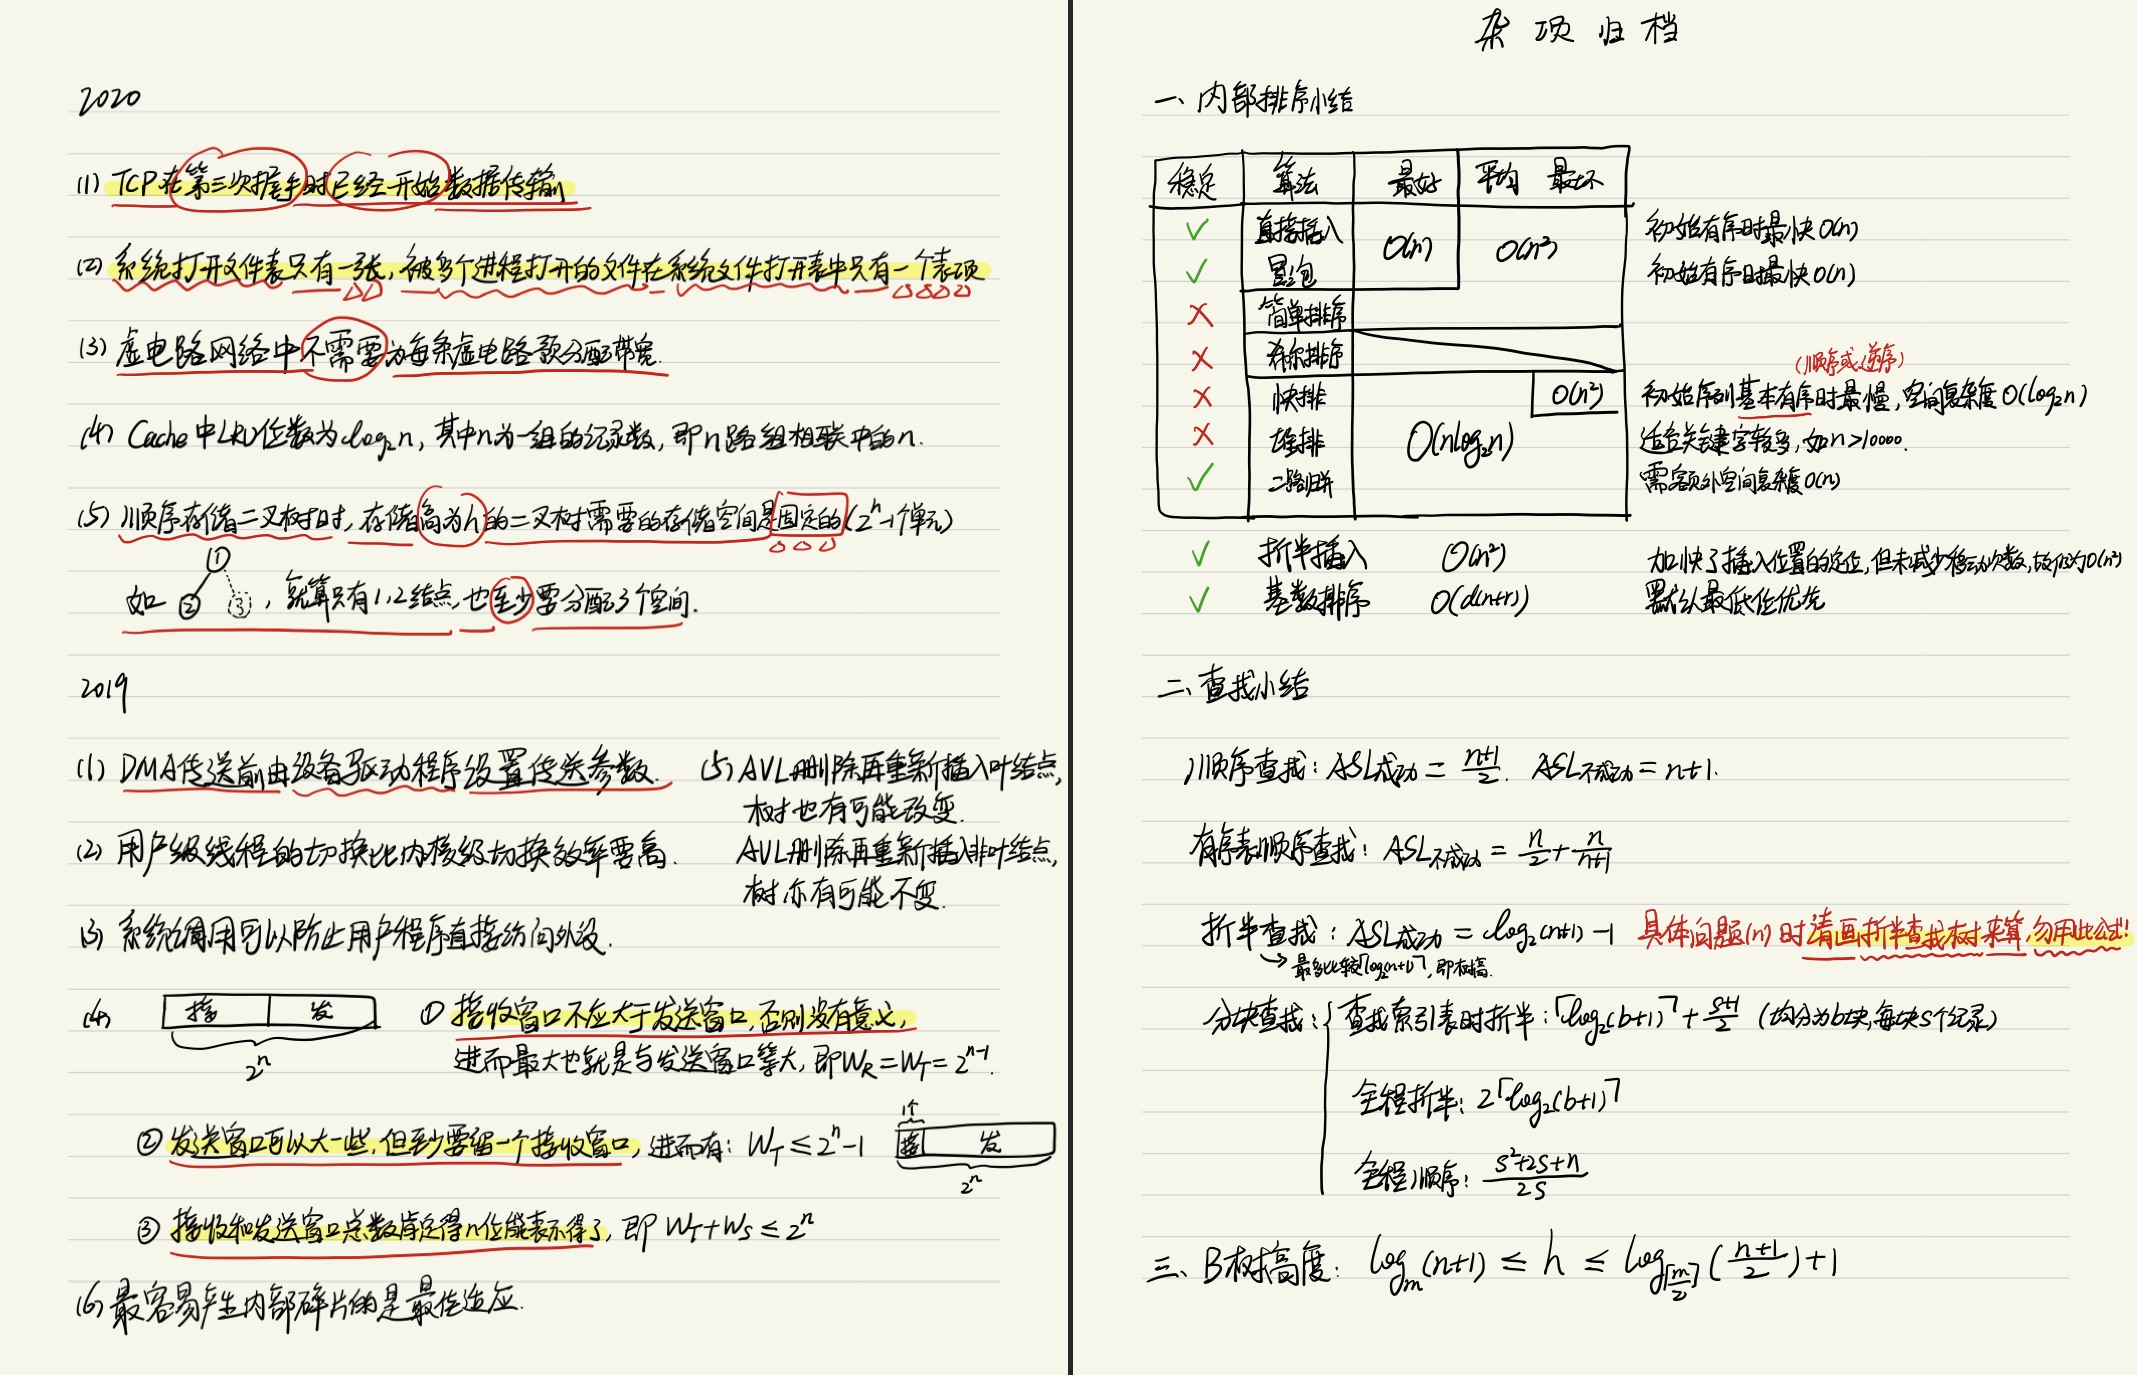 2020
(1) TCP在第三次握手时已经开始数据传输
(2) 系统打开文件表只有一张，被多个进程打开的文件在系统文件打开表中只有一个表项
(3) 虚电路网络中不需要为每条虚电路预分配带宽.
(4) Cache中LRU位数为log₂n，其中n为一组的记录数，即n路组相联中的n.
(5) 顺序存储二叉树时，存储高为h的二叉树需要的存储空间是固定的(2ⁿ-1个单元)
① ② ③
如 ，就算只有1,2结点，也至少要分配3个空间.
2019
(1) DMA传送前由设备驱动程序设置传送参数.
(2) 用户级线程的切换比内核级切换效率要高.
(3) 系统调用可以防止用户程序直接访问外设.
(5) AVL删除再重新插入叶结点，
树也有可能改变.
AVL删除再重新插入非叶结点，
树亦有可能不变.
(4) 接 发
2ⁿ
① 接收窗口不应大于发送窗口，否则没有意义，
进而最大也就是与发送窗口等大，即W_R=W_T=2ⁿ⁻¹.
② 发送窗口可以大一些，但至少要留一个接收窗口，进而有：W_T≤2ⁿ-1
1个
接 发
2ⁿ
③ 接收和发送窗口总数肯定得n位能表示得了，即 W_T+W_S≤2ⁿ
(6) 最容易产生内部碎片的是最佳适应.
杂项归档
一、内部排序小结
稳定 算法 最好 平均 最坏
✓ 直接插入 O(n) O(n²) 初始有序时最快O(n)
✓ 冒泡 初始有序时最快O(n)
✗ 简单排序
✗ 希尔排序
(顺序或逆序)
✗ 快排 O(n²) 初始序列基本有序时最慢，空间复杂度O(log₂n)
✗ 堆排 O(nlog₂n) 适合关键字较多，如n>10000.
✓ 二路归并 需额外空间复杂度O(n)
✓ 折半插入 O(n²) 加快了插入位置的定位，但未减少移动次数，故仍为O(n²)
✓ 基数排序 O(d(n+r)) 默认最低位优先
二、查找小结
顺序查找：ASL成功 = (n+1)/2. ASL不成功 = n+1.
有序表顺序查找：ASL不成功 = n/2 + n/(n+1)
折半查找：ASL成功 = log₂(n+1)-1 具体问题(n)时请画折半查找树来算，勿用此公式!
→ 最多比较⌈log₂(n+1)⌉，即树高.
分块查找：{ 查找索引表时折半：⌈log₂(b+1)⌉ + (s+1)/2 (均分为b块，每块s个记录)
全程折半：2⌈log₂(b+1)⌉
全程顺序：(s²+2s+n)/2s
三、B树高度：log_m(n+1) ≤ h ≤ log_⌈m/2⌉((n+1)/2)+1